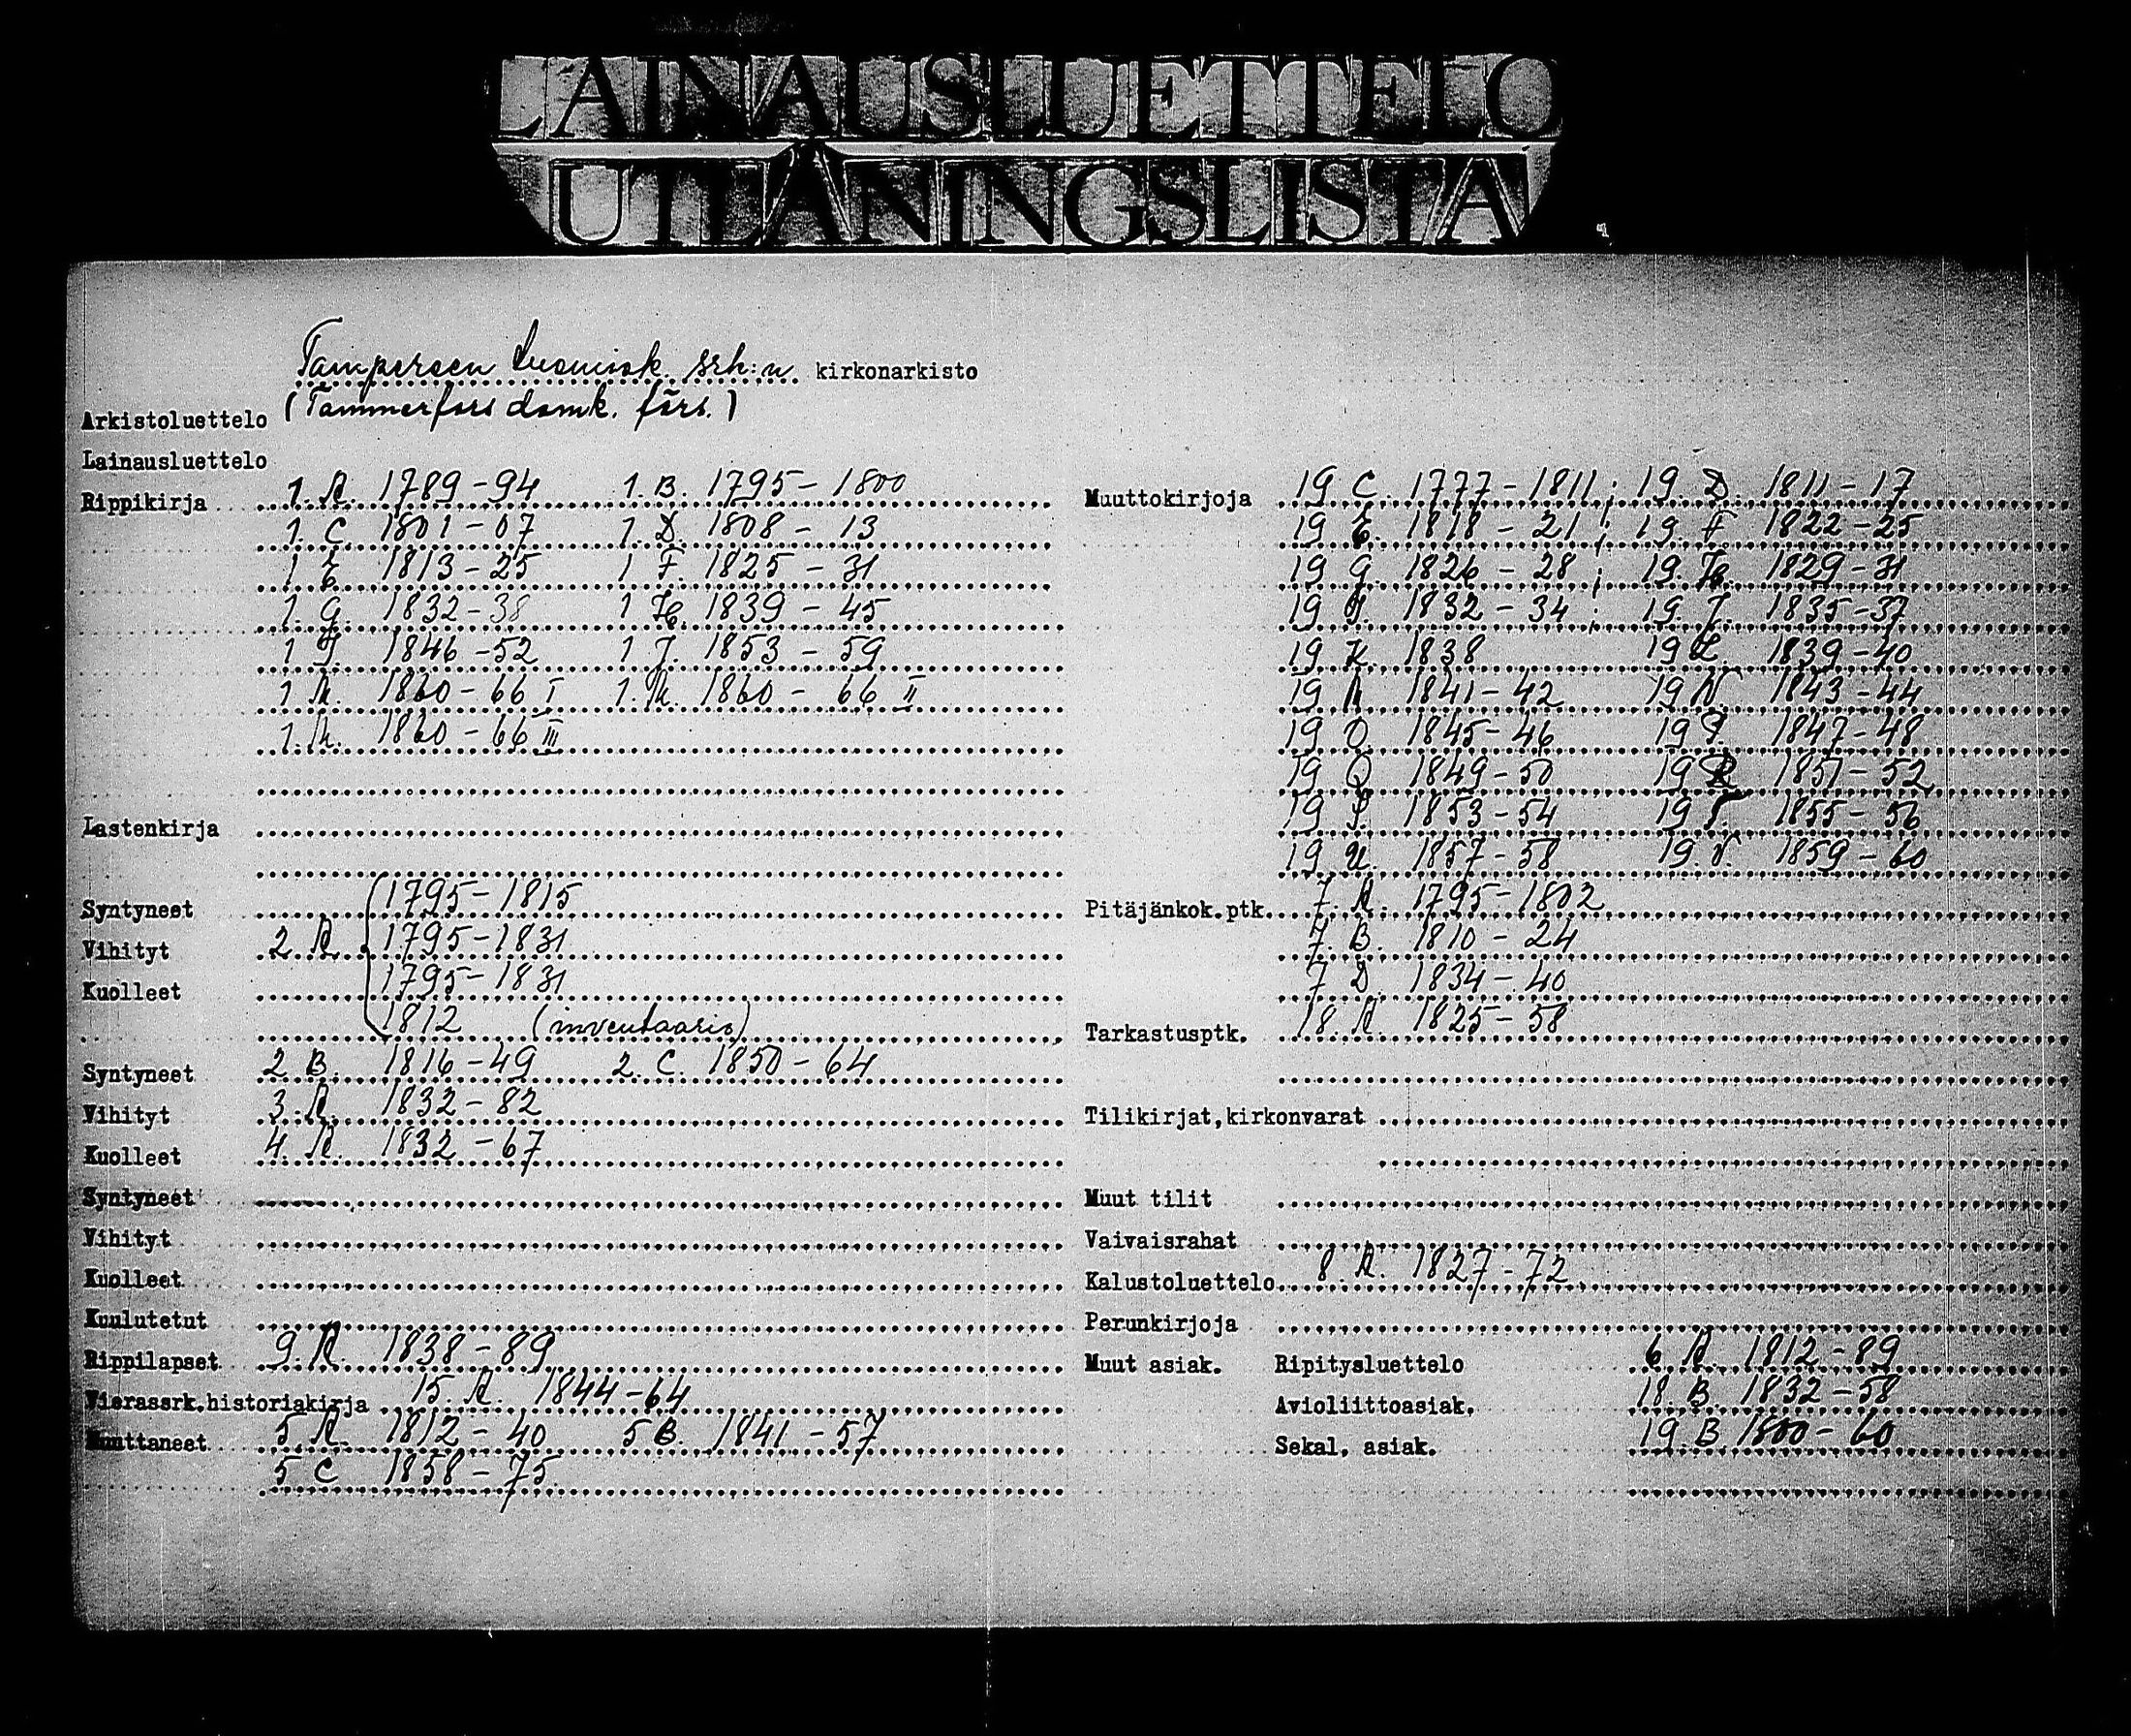 LAINAUSLUETTELO
UTLÅNINGSLISTA
Tampereen tuomiok. srh:n kirkonarkisto
(Tammerfors domk. förs.)
Arkistoluettelo
Lainausluettelo
Rippikirja 1. A. 1789-94 1. B. 1795-1800
1. C. 1801-07 1. D. 1808-13
1 E 1813-25 1 F. 1825-31
1. G. 1832-38 1 H 1839-45
1 I. 1846-52 1 J. 1853-59
1 K. 1860-66 I 1. K. 1860-66 II
1. K. 1860-66 III
Lastenkirja
Syntyneet 1795-1815
Vihityt 2. A. 1795-1831
Kuolleet 1795-1831
1812 (inventaario)
Syntyneet 2 B. 1816-49 2. C. 1850-64
Vihityt 3. A. 1832-82
Kuolleet 4. A. 1832-67
Syntyneet
Vihityt
Kuolleet
Kuulutetut
Rippilapset 9. A. 1838-89
Vierassrk.historiakirja 15. A. 1844-64
Muuttaneet 5. A. 1812-40 5 B. 1841-57
5 C 1858-75.
Muuttokirjoja 19 C. 1777-1811; 19. D. 1811-17
19 E. 1818-21; 19. F 1822-25
19 G. 1826-28; 19. H. 1829-31
19 I. 1832-34; 19. J. 1835-37
19 K. 1838 19 L. 1839-40
19 M 1841-42 19 N. 1843-44
19 O. 1845-46 19 P. 1847-48
19 Q 1849-50 19 R 1851-52
19 S. 1853-54 19 T. 1855-56
19 U. 1857-58 19. V. 1859-60
Pitäjänkok.ptk. 7. A. 1795-1802
7. B. 1810-24
7 D. 1834-40
Tarkastusptk. 18. A. 1825-58
Tilikirjat,kirkonvarat
Muut tilit
Vaivaisrahat
Kalustoluettelo 8 A. 1827-72
Perunkirjoja
Muut asiak. Ripitysluettelo 6 A. 1812-89
Avioliittoasiak. 18. B. 1832-58
Sekal. asiak. 19. B 1800-60